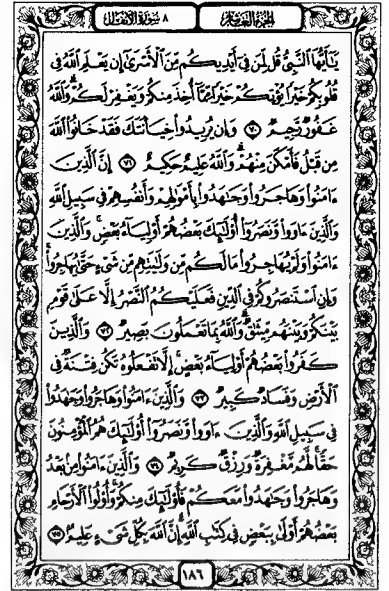 الجزء العاشر ٨ سورة الأنفال
يَـٰٓأَيُّهَا ٱلنَّبِىُّ قُل لِّمَن فِىٓ أَيْدِيكُم مِّنَ ٱلْأَسْرَىٰٓ إِن يَعْلَمِ ٱللَّهُ فِى
قُلُوبِكُمْ خَيْرًا يُؤْتِكُمْ خَيْرًا مِّمَّآ أُخِذَ مِنكُمْ وَيَغْفِرْ لَكُمْ ۗ وَٱللَّهُ
غَفُورٌ رَّحِيمٌ ٧٠ وَإِن يُرِيدُوا۟ خِيَانَتَكَ فَقَدْ خَانُوا۟ ٱللَّهَ
مِن قَبْلُ فَأَمْكَنَ مِنْهُمْ ۗ وَٱللَّهُ عَلِيمٌ حَكِيمٌ ٧١ إِنَّ ٱلَّذِينَ
ءَامَنُوا۟ وَهَاجَرُوا۟ وَجَـٰهَدُوا۟ بِأَمْوَٰلِهِمْ وَأَنفُسِهِمْ فِى سَبِيلِ ٱللَّهِ
وَٱلَّذِينَ ءَاوَوا۟ وَّنَصَرُوٓا۟ أُو۟لَـٰٓئِكَ بَعْضُهُمْ أَوْلِيَآءُ بَعْضٍ ۚ وَٱلَّذِينَ
ءَامَنُوا۟ وَلَمْ يُهَاجِرُوا۟ مَا لَكُم مِّن وَلَـٰيَتِهِم مِّن شَىْءٍ حَتَّىٰ يُهَاجِرُوا۟ ۚ
وَإِنِ ٱسْتَنصَرُوكُمْ فِى ٱلدِّينِ فَعَلَيْكُمُ ٱلنَّصْرُ إِلَّا عَلَىٰ قَوْمٍۭ
بَيْنَكُمْ وَبَيْنَهُم مِّيثَـٰقٌ ۗ وَٱللَّهُ بِمَا تَعْمَلُونَ بَصِيرٌ ٧٢ وَٱلَّذِينَ
كَفَرُوا۟ بَعْضُهُمْ أَوْلِيَآءُ بَعْضٍ ۚ إِلَّا تَفْعَلُوهُ تَكُن فِتْنَةٌ فِى
ٱلْأَرْضِ وَفَسَادٌ كَبِيرٌ ٧٣ وَٱلَّذِينَ ءَامَنُوا۟ وَهَاجَرُوا۟ وَجَـٰهَدُوا۟
فِى سَبِيلِ ٱللَّهِ وَٱلَّذِينَ ءَاوَوا۟ وَّنَصَرُوٓا۟ أُو۟لَـٰٓئِكَ هُمُ ٱلْمُؤْمِنُونَ
حَقًّا ۚ لَّهُم مَّغْفِرَةٌ وَرِزْقٌ كَرِيمٌ ٧٤ وَٱلَّذِينَ ءَامَنُوا۟ مِنۢ بَعْدُ
وَهَاجَرُوا۟ وَجَـٰهَدُوا۟ مَعَكُمْ فَأُو۟لَـٰٓئِكَ مِنكُمْ ۚ وَأُو۟لُوا۟ ٱلْأَرْحَامِ
بَعْضُهُمْ أَوْلَىٰ بِبَعْضٍ فِى كِتَـٰبِ ٱللَّهِ ۗ إِنَّ ٱللَّهَ بِكُلِّ شَىْءٍ عَلِيمٌۢ ٧٥
١٨٦